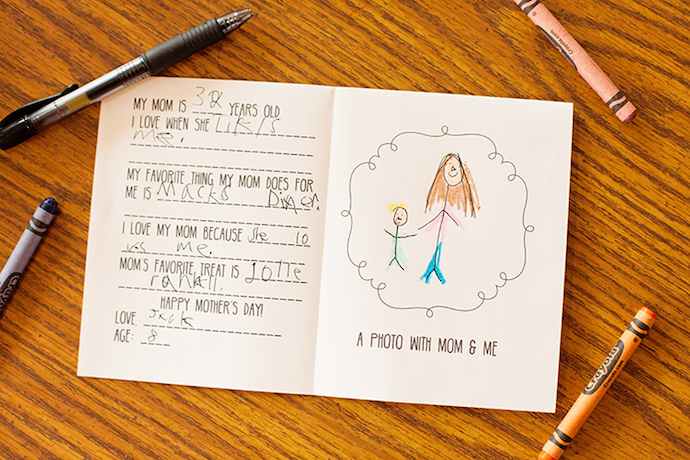 MY MOM IS 32 YEARS OLD
I LOVE WHEN SHE Likis
me.
MY FAVORITE THING MY MOM DOES FOR
ME IS Macks Diner.
I LOVE MY MOM BECAUSE She lo
vis me.
MOM'S FAVORITE TREAT IS
HAPPY MOTHER'S DAY!
LOVE, Jack
AGE: 8
A PHOTO WITH MOM & ME
Crayola